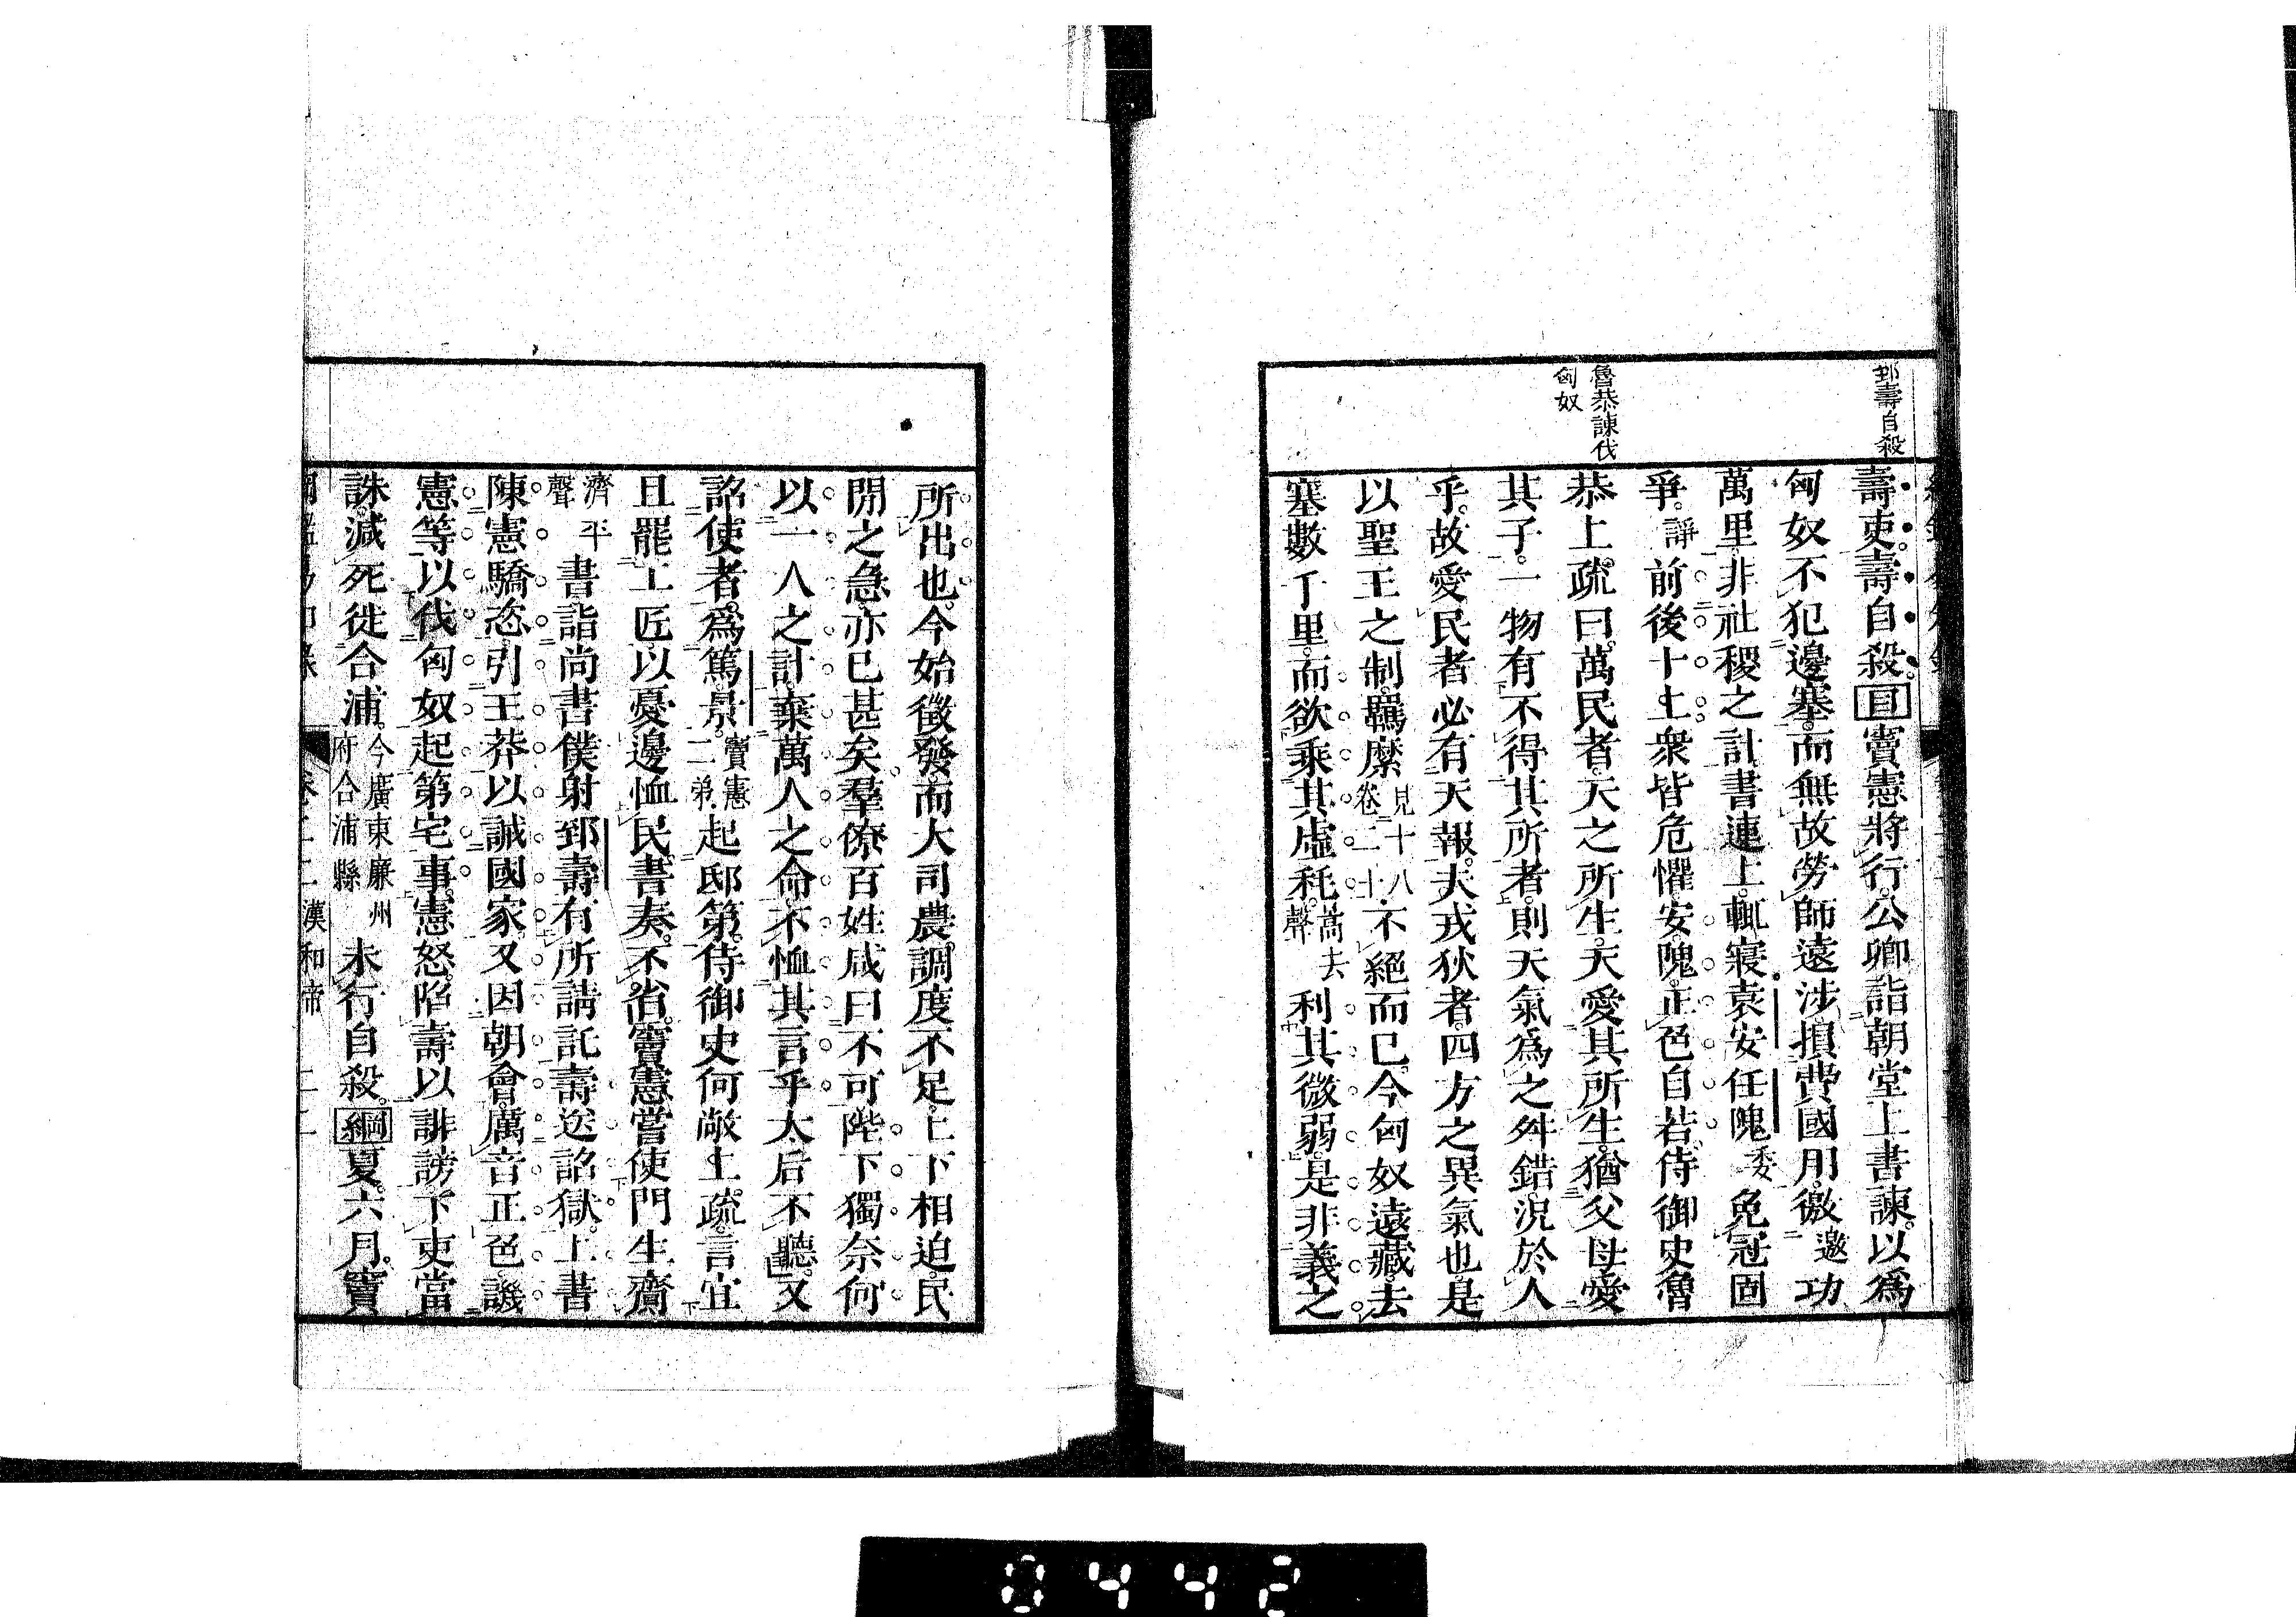 郅壽自殺
魯恭諫伐
匈奴
壽吏。壽自殺。目竇憲將行。公卿詣朝堂上書諫。以爲
匈奴不犯邊塞。而無故勞師遠涉。損費國用。徼邀功
萬里。非社稷之計。書連上。輒寢。袁安任隗委免冠固
爭。諍前後十上。衆皆危懼。安隗正色自若。侍御史魯
恭上疏曰。萬民者。天之所生。天愛其所生。猶父母愛
其子。一物有不得其所者。則天氣爲之舛錯。況於人
乎。故愛民者必有天報。夫戎狄者。四方之異氣也。是
以聖王之制。羈縻見十八卷二十不絕而已。今匈奴遠藏。去
塞數千里。而欲乘其虛耗。蒿去聲利其微弱。是非義之
所出也。今始徵發。而大司農調度不足。上下相迫。民
間之急。亦已甚矣。羣僚百姓咸曰不可。陛下獨奈何
以一人之計。棄萬人之命。不恤其言乎。太后不聽。又
詔使者。爲篤景。竇憲二弟起邸第。侍御史何敞上疏。言宜
且罷工匠。以憂邊恤民。書奏。不省。竇憲嘗使門生齎
濟平聲書詣尚書僕射郅壽。有所請託。壽送詔獄。上書
陳憲驕恣。引王莽以誡國家。又因朝會。厲音正色。譏
憲等以伐匈奴起第宅事。憲怒。陷壽以誹謗。下吏當
誅。減死徙合浦。今廣東廉州府合浦縣未行自殺。綱夏六月。竇
卷二十二 漢和帝 二十二
0442